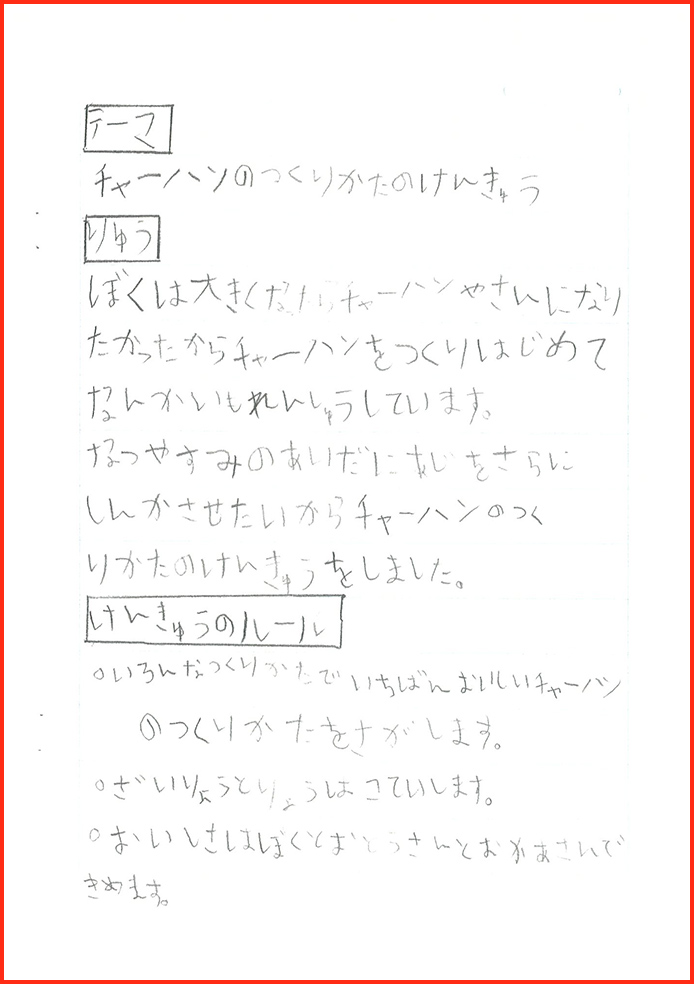 テーマ
チャーハンのつくりかたのけんきゅう
りゆう
ぼくは大きくなたらチャーハンやさんになり
たかったからチャーハンをつくりはじめて
なんかいもれんしゅうしています。
なつやすみのあいだにあじをさらに
しんかさせたいからチャーハンのつく
りかたのけんきゅうをしました。
けんきゅうのルール
○いろんなつくりかたでいちばんおいしいチャーハン
のつくりかたをさがします。
○ざいりょうとりょうはこていします。
○おいしさはぼくとおとうさんとおかあさんで
きめます。